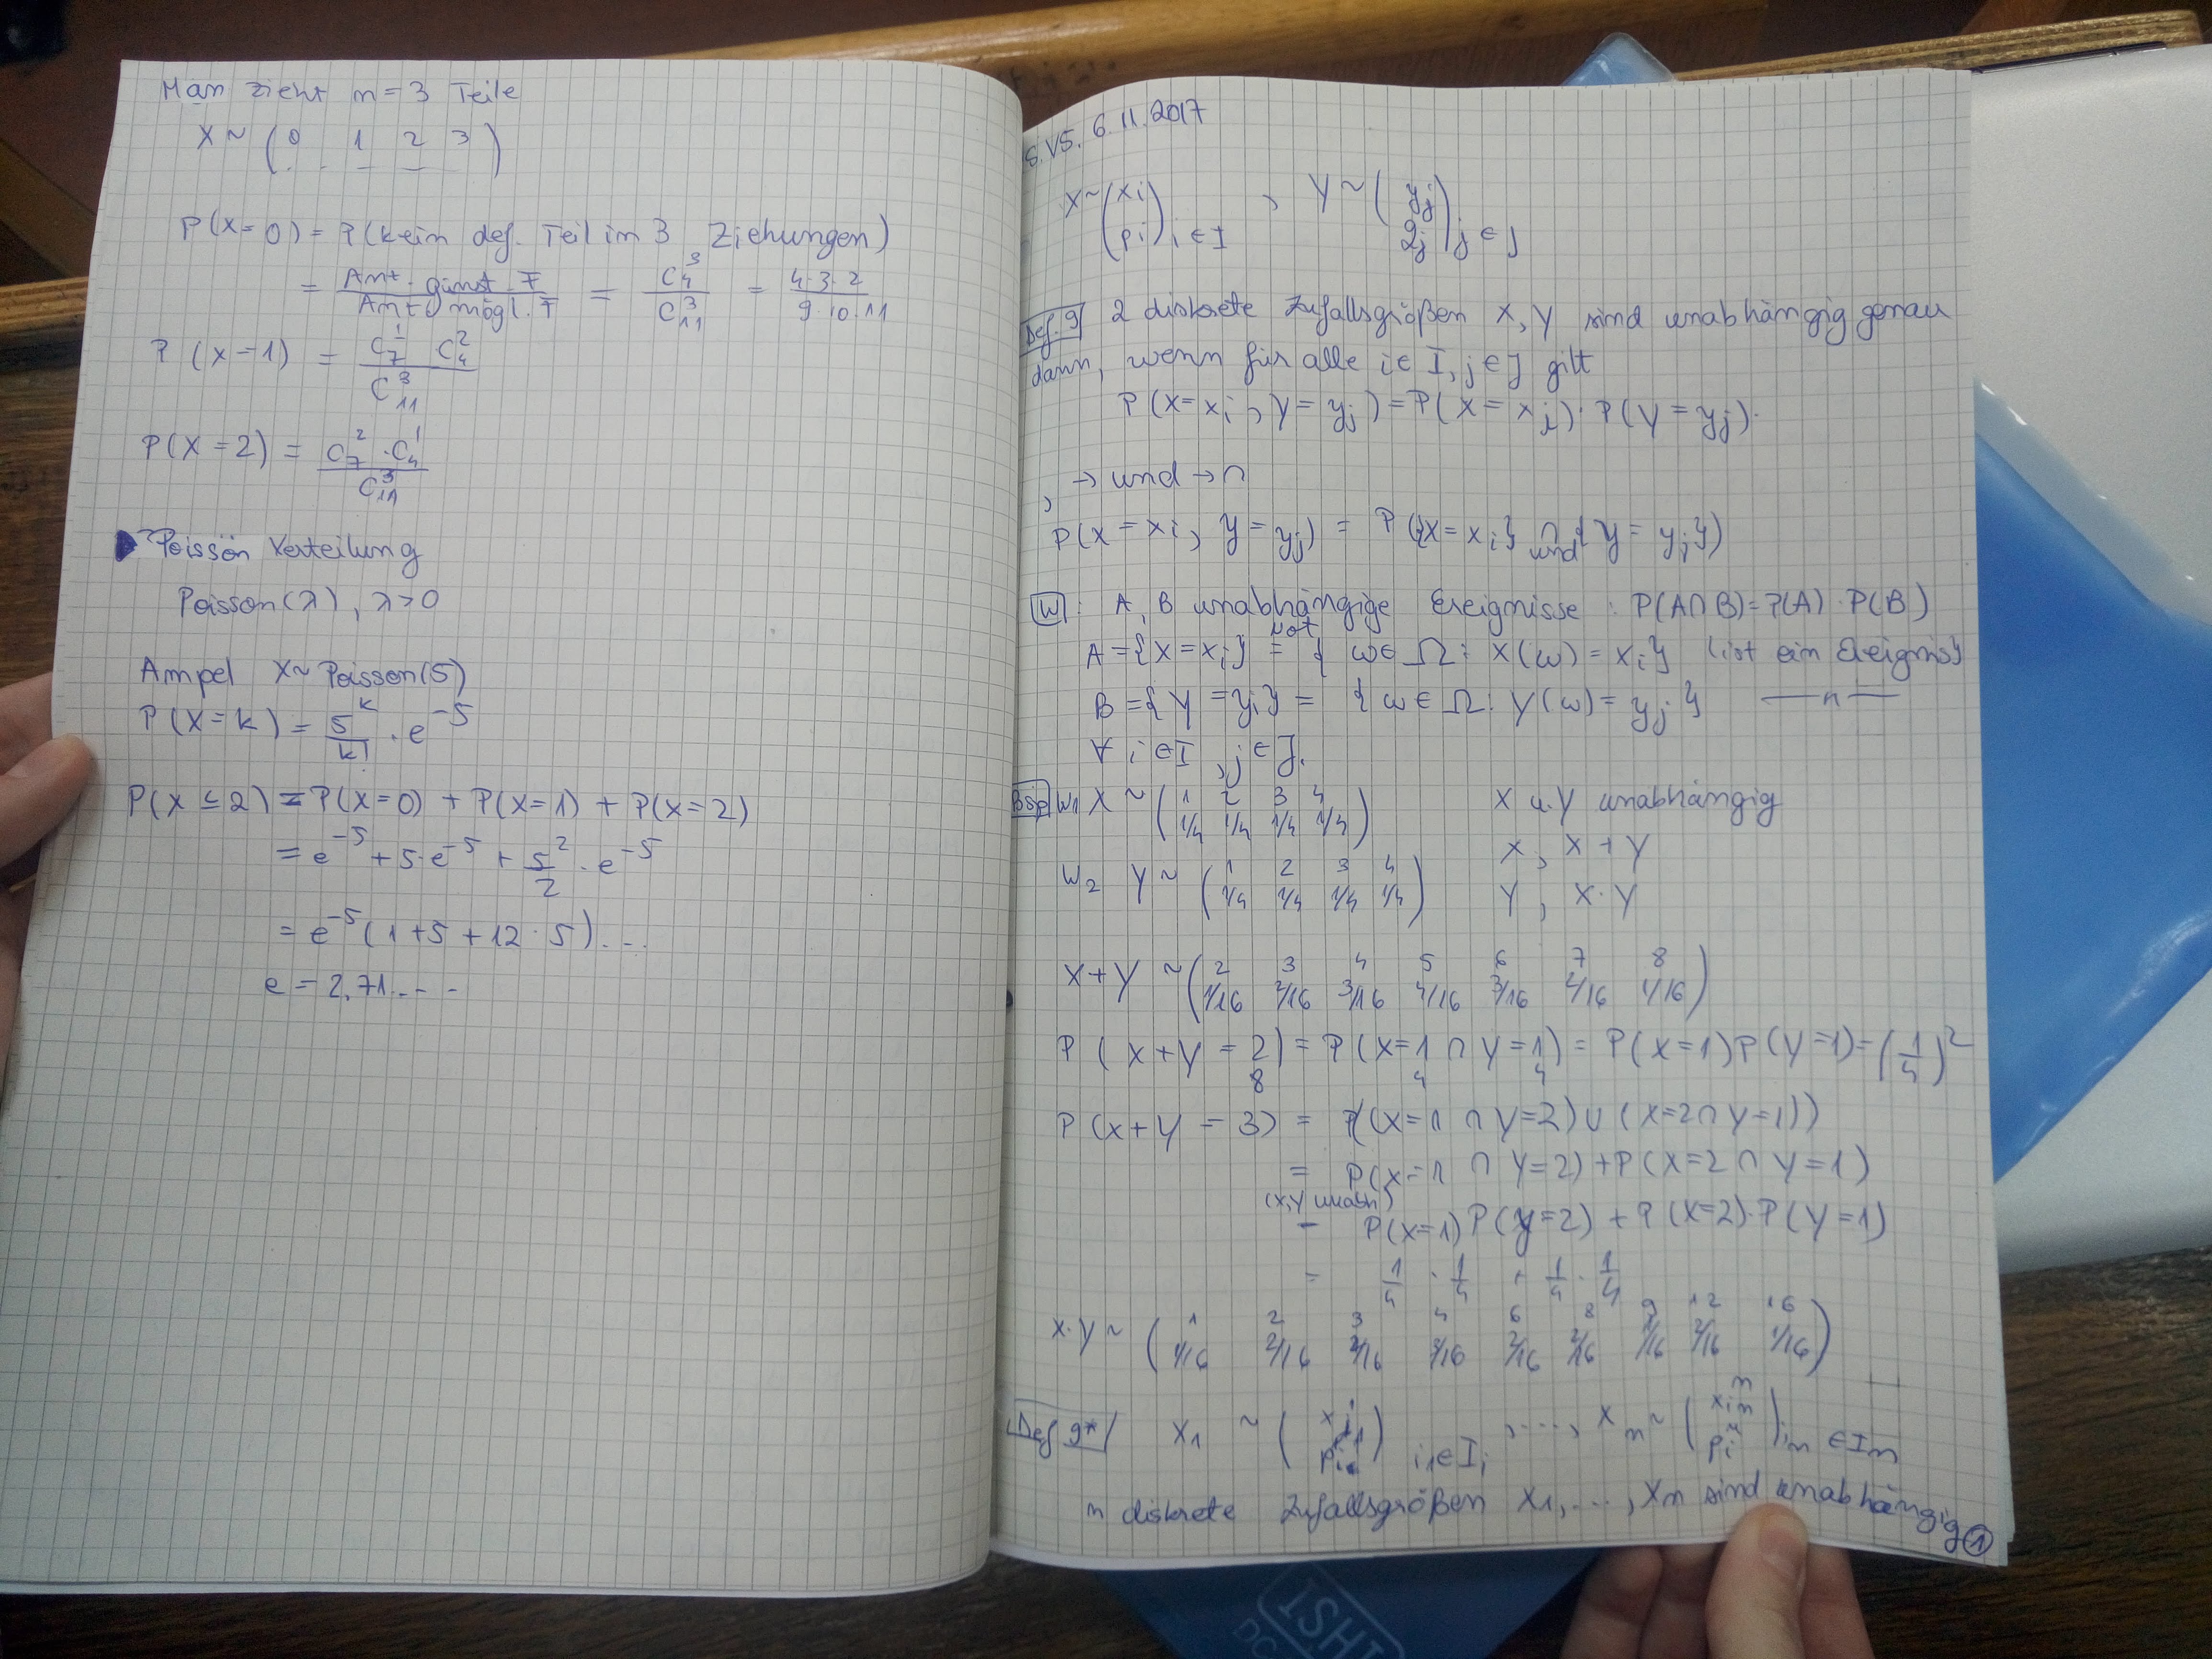 Man zieht n = 3 Teile
X ~ ( 0 1 2 3 )
P(X=0) = P(kein def. Teil in 3 Ziehungen)
= Anz. günst. F / Anz. mögl. F = C₄³ / C₁₁³ = 4·3·2 / 9·10·11
P(X=1) = C₇¹ C₄² / C₁₁³
P(X=2) = C₇² · C₄¹ / C₁₁³
Poisson Verteilung
Poisson(λ), λ>0
Ampel X~Poisson(5)
P(X=k) = 5^k / k! · e^-5
P(X≤2) = P(X=0) + P(X=1) + P(X=2)
= e^-5 + 5·e^-5 + 5²/2 · e^-5
= e^-5 (1+5+12·5)...
e = 2,71...
6. VS. 6.11.2017
X~(xi pi) i∈I , Y~(yj qj) j∈J
Def. 9 2 diskrete Zufallsgrößen X, Y sind unabhängig genau
dann, wenn für alle i∈I, j∈J gilt
P(X=xi, Y=yj) = P(X=xi)·P(Y=yj).
, → und → ∩
P(X=xi, Y=yj) = P({X=xi} ∩ {Y=yj})
und
W: A, B unabhängige Ereignisse: P(A∩B)=P(A)·P(B)
not
A={X=xi} = {ω∈Ω: X(ω)=xi} (ist ein Ereignis)
B={Y=yj} = {ω∈Ω: Y(ω)=yj} —"—
∀ i∈I, j∈J.
Bsp W1 X ~ ( 1 2 3 4 X u. Y unabhängig
1/4 1/4 1/4 1/4 ) X, X+Y
W2 Y ~ ( 1 2 3 4
1/4 1/4 1/4 1/4 ) Y, X·Y
X+Y ~ ( 2 3 4 5 6 7 8
1/16 2/16 3/16 4/16 3/16 2/16 1/16 )
P(X+Y=2) = P(X=1 ∩ Y=1) = P(X=1)P(Y=1)=(1/4)²
8 4 4
P(X+Y=3) = P((X=1 ∩ Y=2)∪(X=2∩Y=1))
= P(X=1 ∩ Y=2)+P(X=2∩Y=1)
(X,Y unabh)
= P(X=1)P(Y=2)+P(X=2)·P(Y=1)
= 1/4 · 1/4 + 1/4 · 1/4
X·Y ~ ( 1 2 3 4 6 8 9 12 16
1/16 2/16 2/16 3/16 2/16 2/16 1/16 2/16 1/16 )
Def 9* X₁ ~ ( ) i₁∈I₁ ,...., Xn ~ ( ) in∈In
n diskrete Zufallsgrößen X1,..., Xn sind unabhängig
1
ISHI
DC